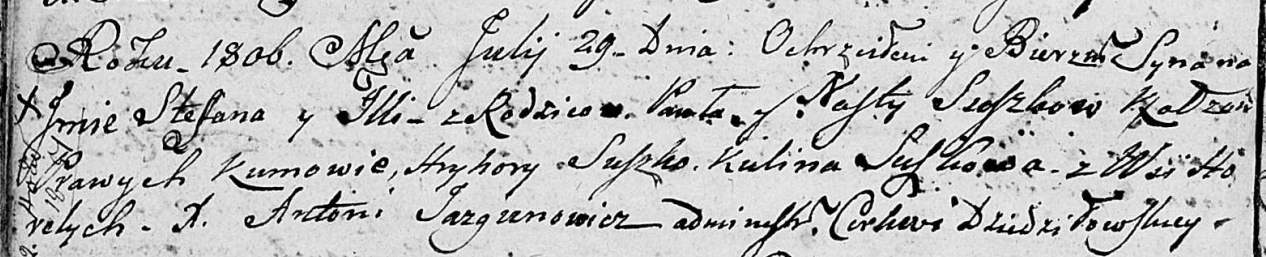 Roku 1806. Mca Julij 29 Dnia: Ochrzciłem y Bierzm. Syna na
Jmie Stefana y Illi z Rodzicow. Pawła y Nasty Suszkow
Prawych Kumowie, Hryhory Suszko. Kulina Suszkowa. z Wsi Ho
relych. X. Antoni Jazgunowicz administr. Cerkwi Dziedziłowskiey.